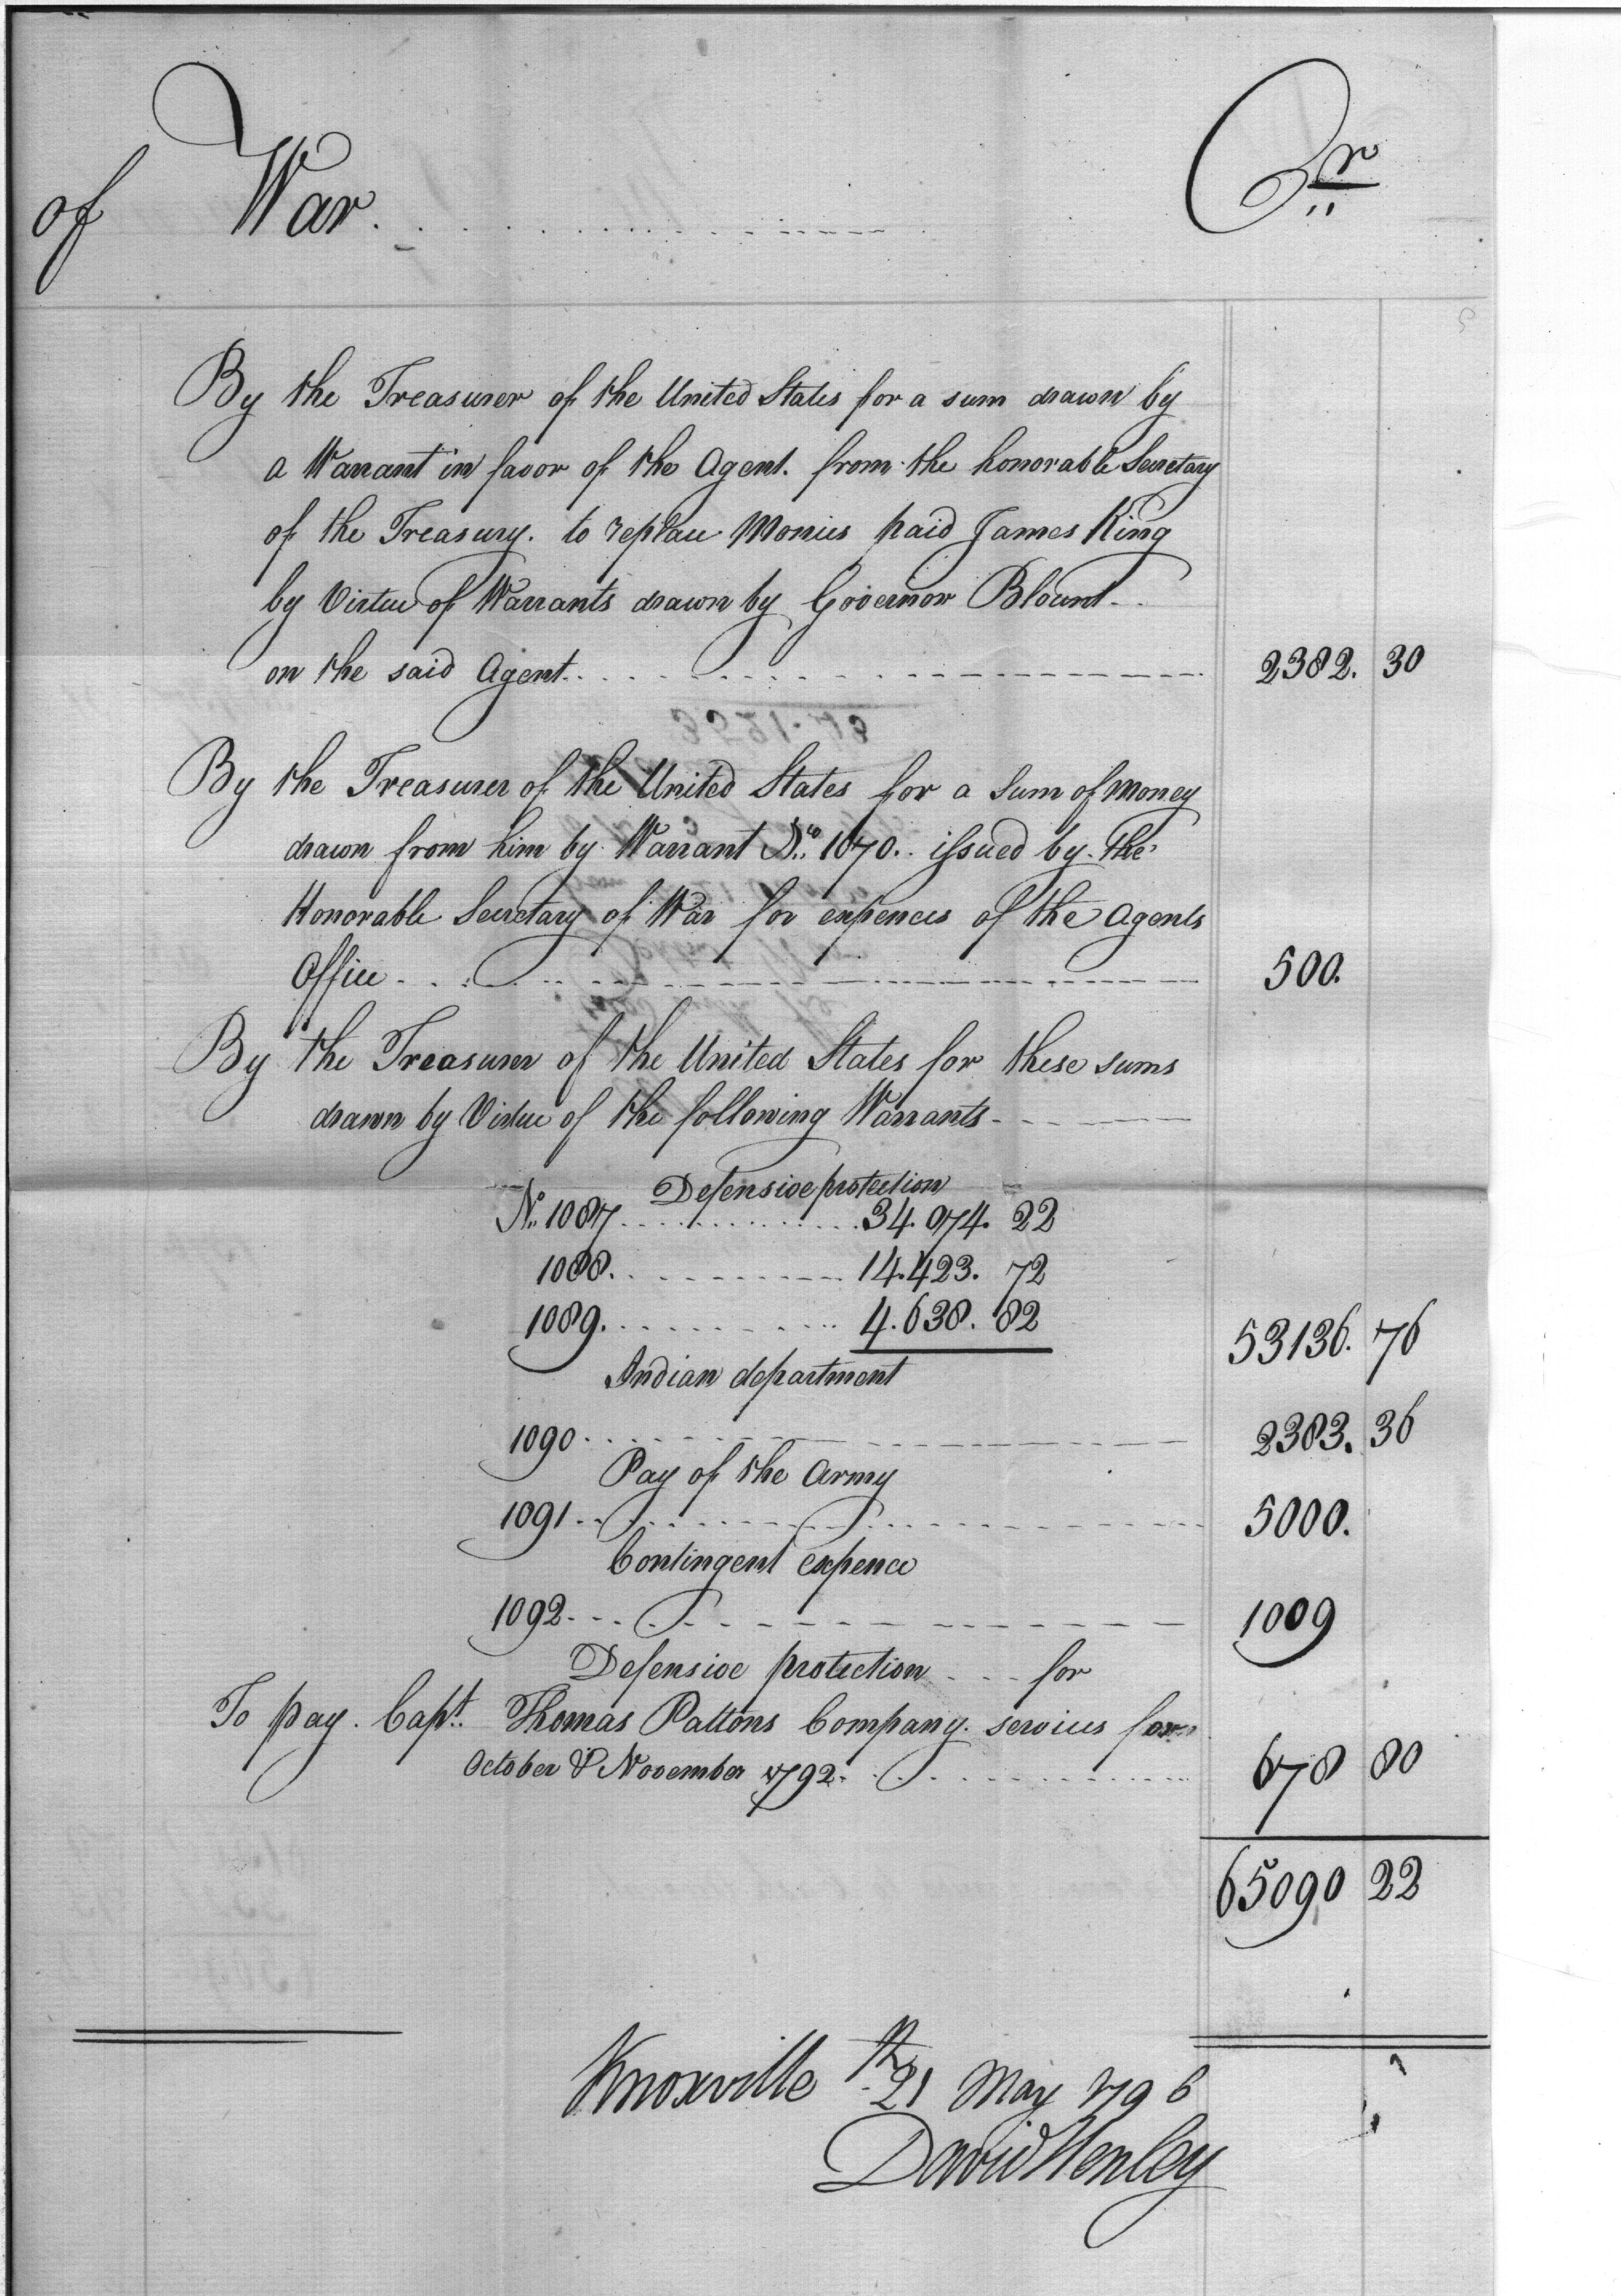 of War. Cr
By the Treasurer of the United States for a sum drawn by
a Warrant in favor of the Agent. from the honorable Secretary
of the Treasury. to replace Monies paid James King
by Virtue of Warrants drawn by Governor Blount
on the said Agent 2382. 30
By the Treasurer of the United States for a Sum of Money
drawn from him by Warrant No. 1070. issued by the
Honorable Secretary of War for expences of the Agents
Office 500.
By the Treasurer of the United States for these sums
drawn by Virtue of the following Warrants
Defensive protection
No. 1087 34.074. 22
1088. 14.423. 72
1089. 4.638. 82 53136. 76
Indian department
1090 2383. 36
Pay of the Army
1091 5000.
Contingent expence
1092 1009
Defensive protection for
To pay Capt. Thomas Pattons Company services for
October & November 1792 678 80
65090 22
Knoxville 21 May 1796
David Henley